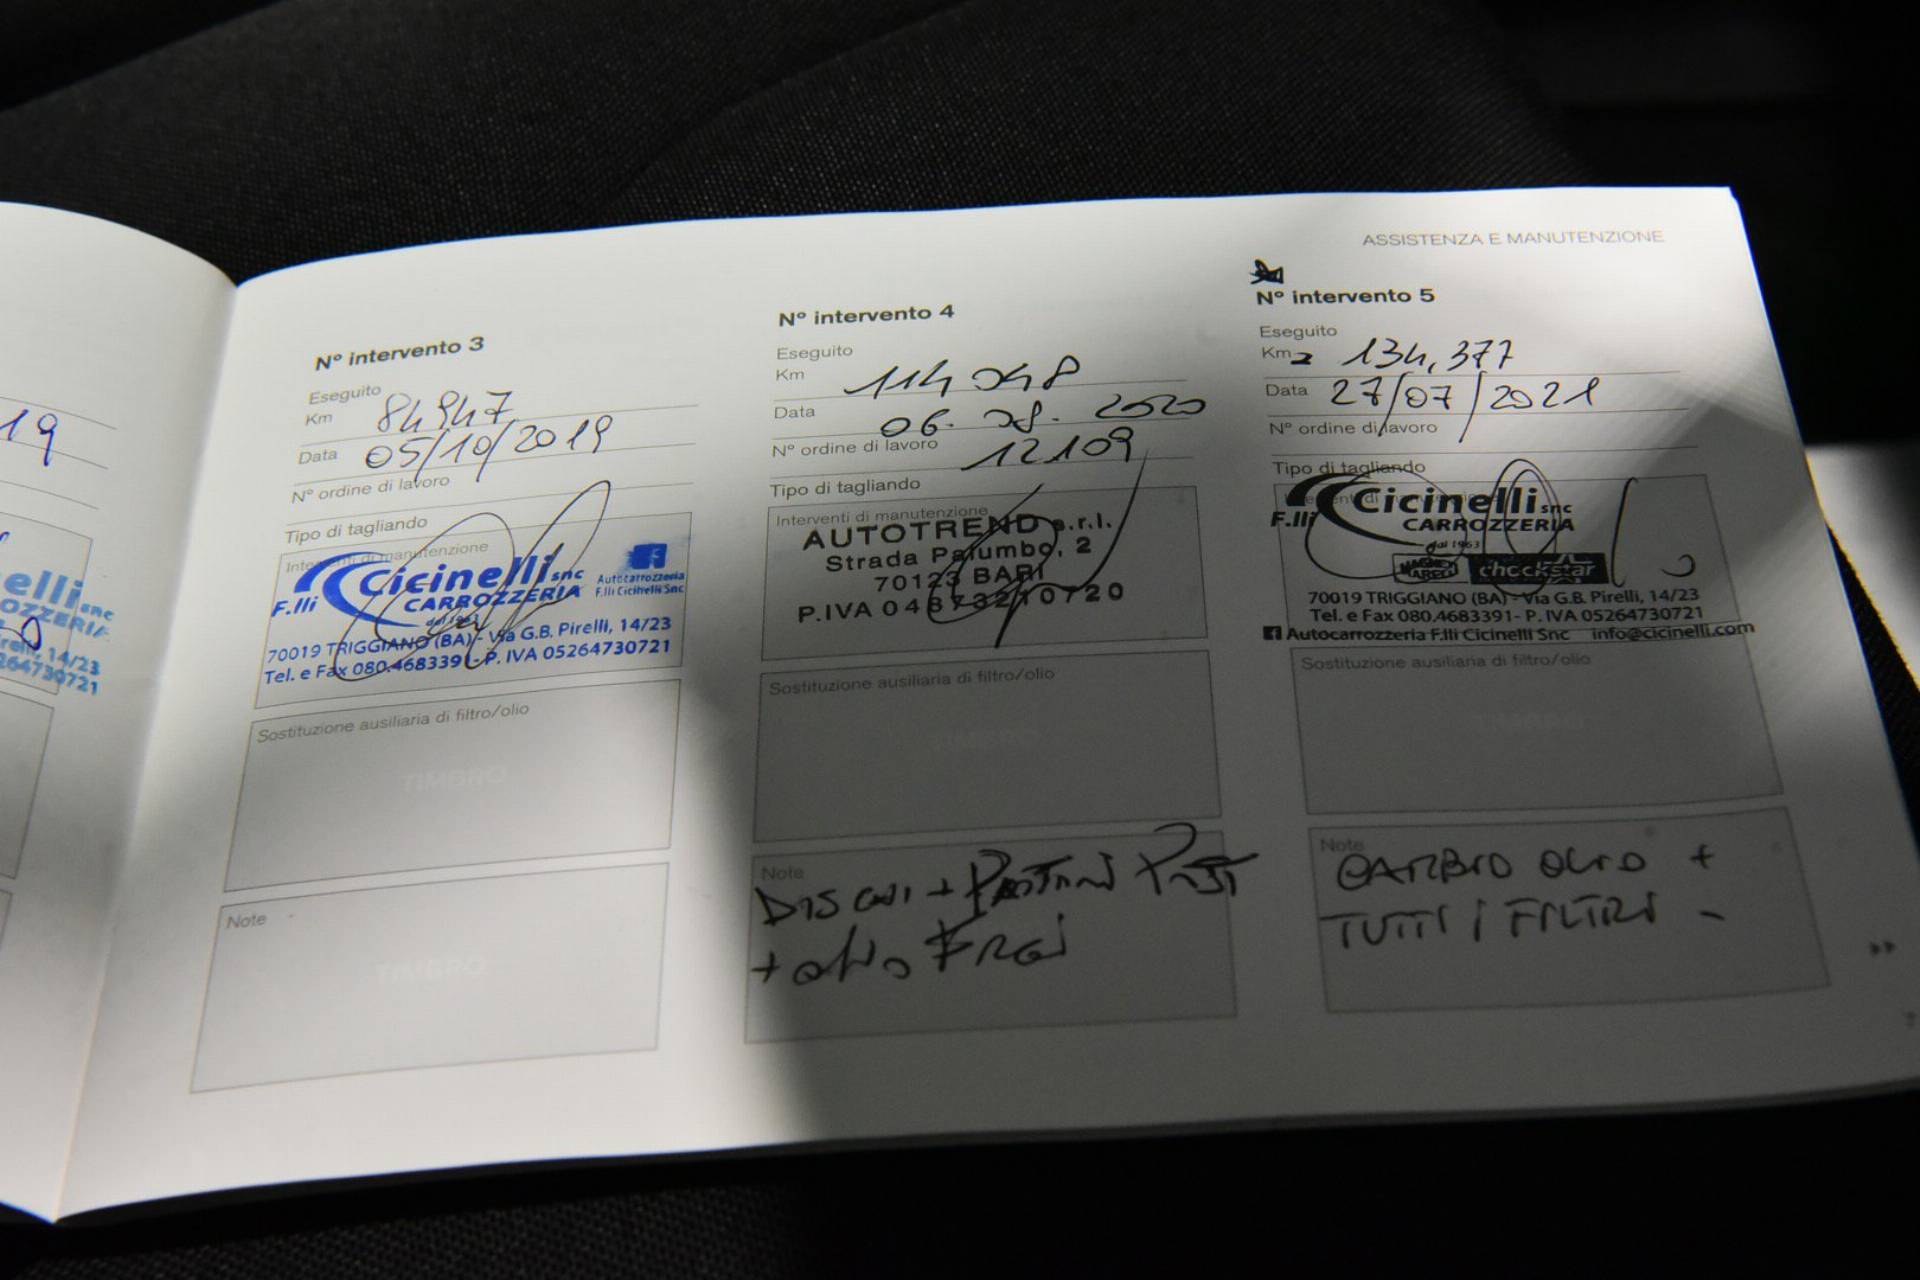 ASSISTENZA E MANUTENZIONE
19
elli snc
OZZERIA
14/23
264730721
N° intervento 3
Eseguito
Km 84947
Data 05/10/2019
N° ordine di lavoro
Tipo di tagliando
Interventi di manutenzione
F.lli Cicinelli snc
CARROZZERIA
dal 1963
Autocarrozzeria
F.lli Cicinelli Snc
70019 TRIGGIANO (BA) - Via G.B. Pirelli, 14/23
Tel. e Fax 080.4683391 - P. IVA 05264730721
Sostituzione ausiliaria di filtro/olio
TIMBRO
Note
TIMBRO
N° intervento 4
Eseguito
Km 114 048
Data 06. 08. 2020
N° ordine di lavoro 12109
Tipo di tagliando
Interventi di manutenzione
AUTOTREND s.r.l.
Strada Palumbo, 2
70123 BARI
P.IVA 04873210720
Sostituzione ausiliaria di filtro/olio
Note
DISCHI +
+ olio
N° intervento 5
Eseguito
Km 134,377
Data 27/07/2021
N° ordine di lavoro
Tipo di tagliando
F.lli Cicinelli snc
CARROZZERIA
dal 1963
MAGNETI MARELLI checkstar
70019 TRIGGIANO (BA) - Via G.B. Pirelli, 14/23
Tel. e Fax 080.4683391 - P. IVA 05264730721
Autocarrozzeria F.lli Cicinelli Snc info@cicinelli.com
Sostituzione ausiliaria di filtro/olio
Note
CAMBIO OLIO +
TUTTI I FILTRI -
7